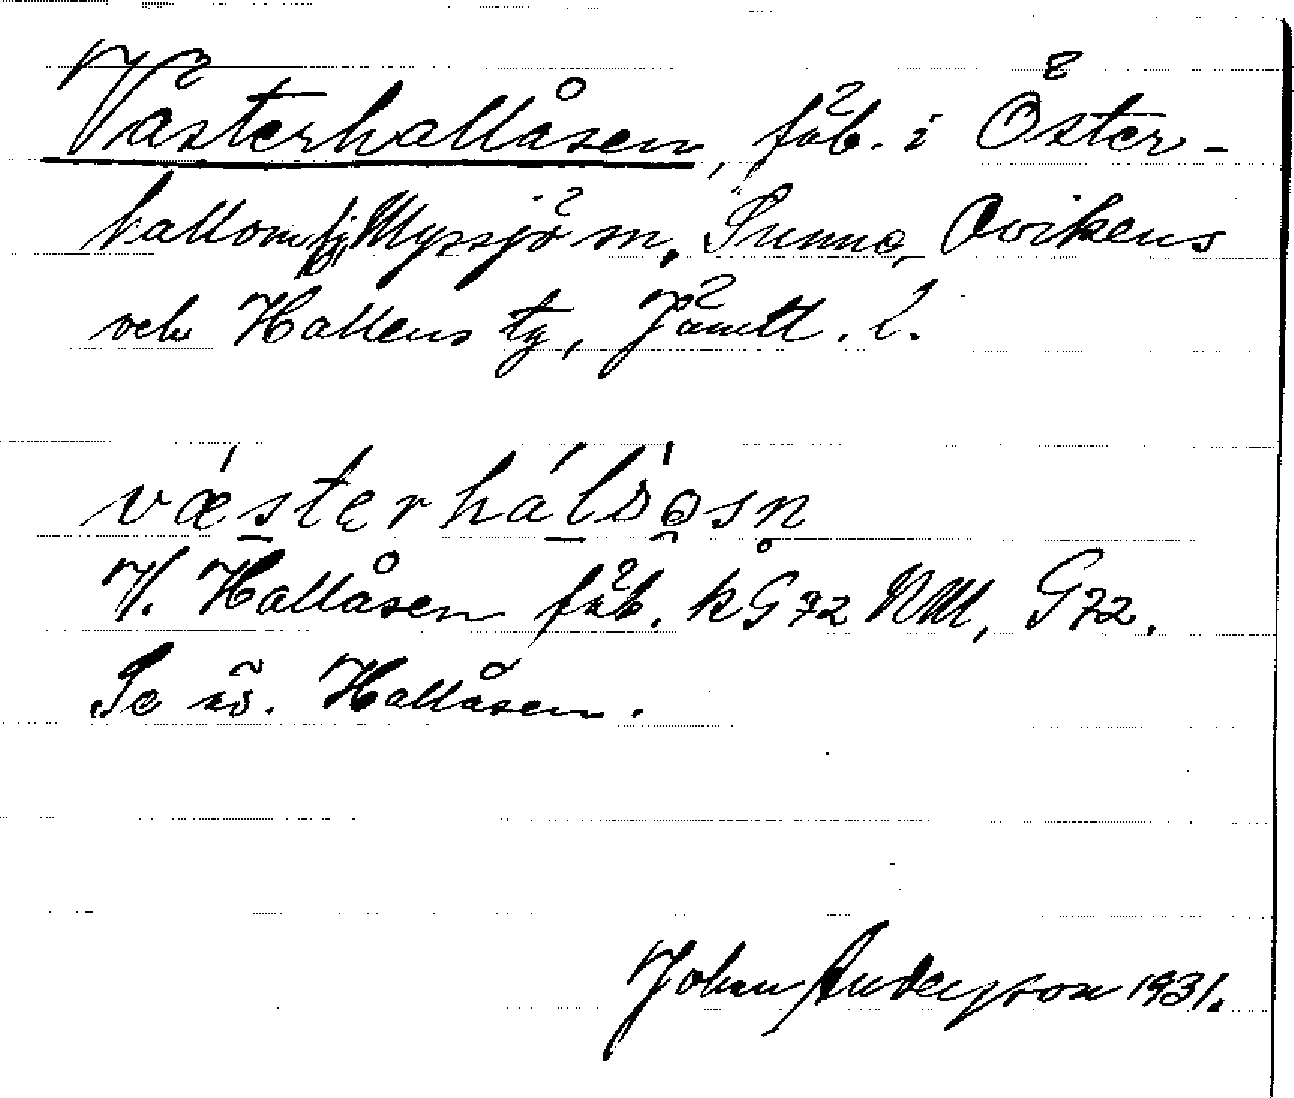 Västerhallåsen, fäb. i Öster-
hallom fj, Myssjö sn, Sunne, Ovikens
och Hallens tg, Jämtl. l.
væsterhálsåsn
V. Hallåsen fäb. kG72 NM, G72.
Se äv. Hallåsen.
Johan Andersson 1931.